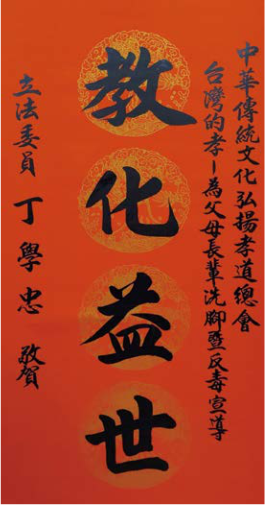 中華傳統文化弘揚孝道總會
台灣的孝－為父母長輩洗腳暨反毒宣導
教化益世
立法委員 丁學忠 敬賀